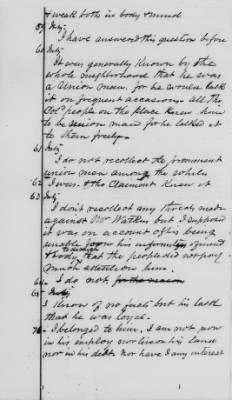 & weak both in body & mind
59 Intj.
I have answered this question before
60 Intj
It was generally known by the
whole neighborhood that he was
a Union man, for he would talk
it on frequent occasions all the
Cold people on the place knew him
to be union man for he talked it
to them freely.
61 Intj
I do not recollect the prominent
union men among the whites
62 I was. & Tho Claemont knew it
63 Intj.
I don't recollect any threats made
against Mr Watkins but I supposed
it was on account of his being
unable from his infirmity of mind
& body that the people did not pay
much attention him.
64 I do not for the reason
65 Intj
I know of no facts but his last
that he was loyal.
70 I belonged to him. I am not now
in his employ nor live on his land
nor in his debt nor have I any interest